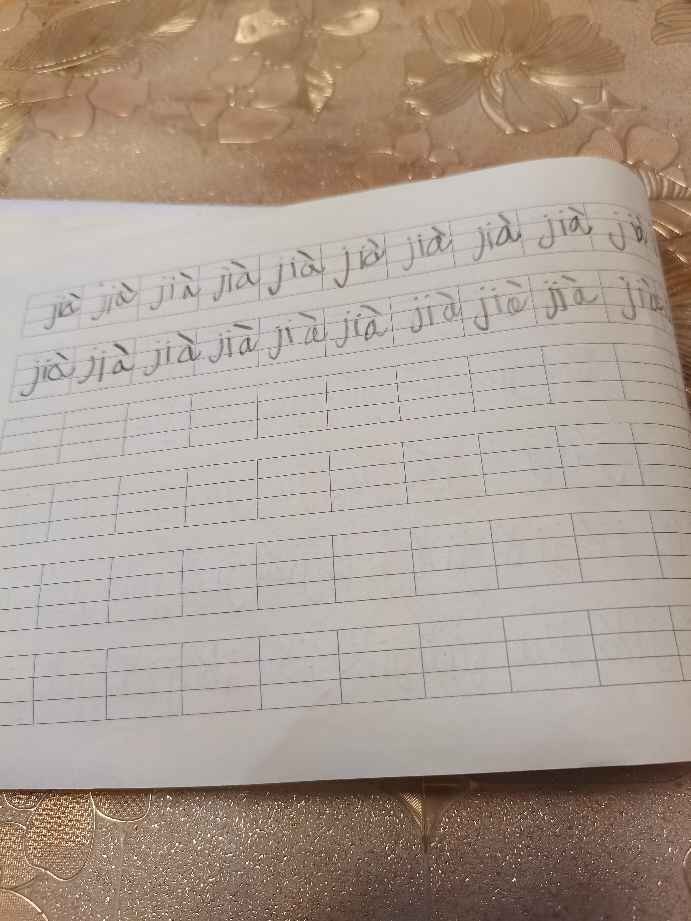 jià jià jià jià jià jià jià jià jià jià
jià jià jià jià jià jià jià jià jià jià